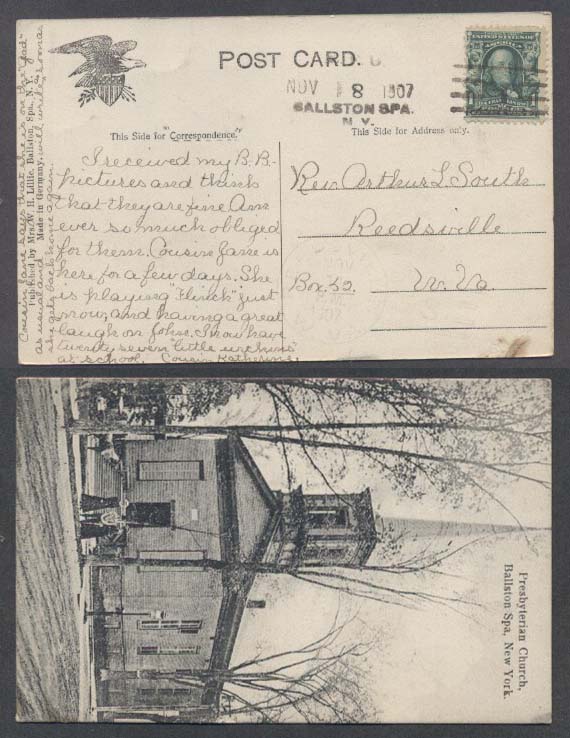 POST CARD.
NOV 8 1907
BALLSTON SPA.
N.Y.
"This Side for Correspondence."
This Side for Address only.
I received my B.B.
pictures and think
that they are fine. Am
ever so much obliged
for them. Cousin Jane is
here for a few days. She
is playing "Flinch" just
now, and having a great
laugh on John. I now have
twenty seven little urchins
at school. Cousin Katherine.
Cousin Jane says that she is on the "Gad"
as usual and will write soon as
she gets back home again.
Published by Mrs. W. H. Lillis, Ballston Spa, N. Y.
Made in Germany.
Rev. Arthur L. South
Reedsville
Box 52. W. Va.
Presbyterian Church,
Ballston Spa, New York.